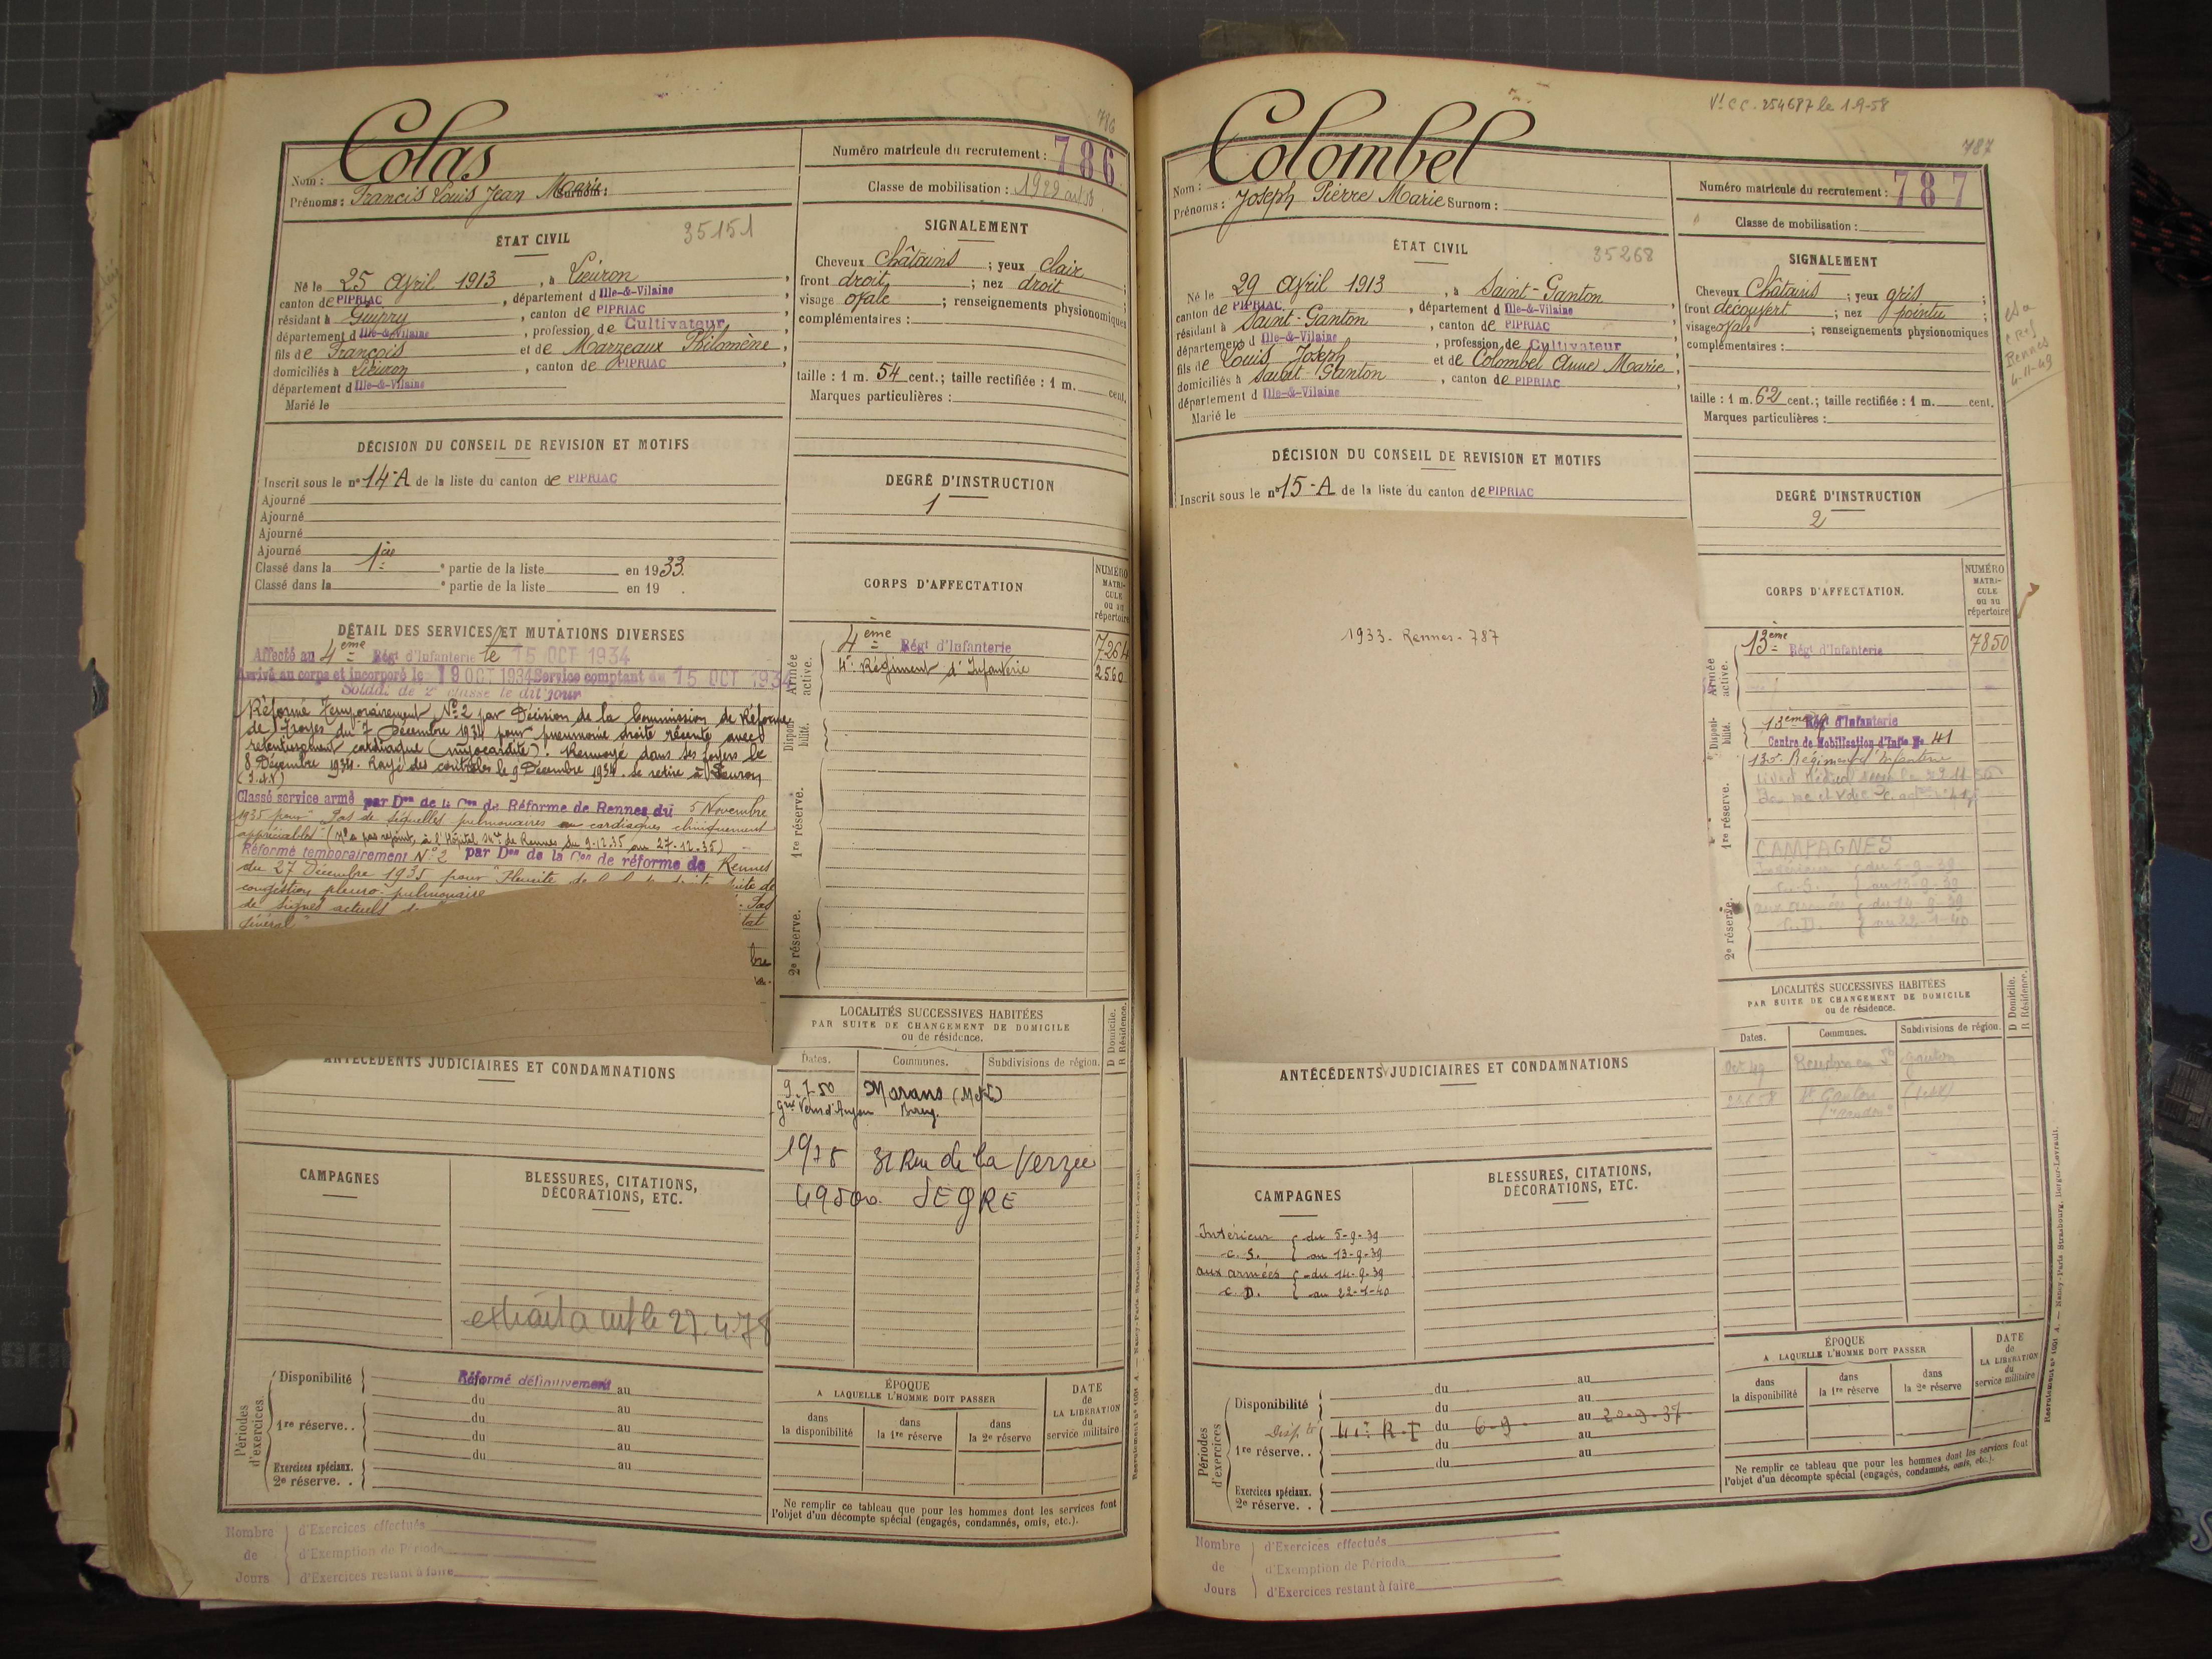 786
Colas
Nom :
Prénoms : Francis Louis Jean Marie Surnom :
Numéro matricule du recrutement : 786
Classe de mobilisation : 1929
ÉTAT CIVIL
35151
Né le 25 Avril 1913, à Lieuron
canton de PIPRIAC, département d Ille-&-Vilaine
résidant à Guipry, canton de PIPRIAC
département d Ille-&-Vilaine, profession de Cultivateur
fils de François et de Marzeaux Philomène
domiciliés à Lieuron, canton de PIPRIAC
département d Ille-&-Vilaine
Marié le
SIGNALEMENT
Cheveux Châtains ; yeux clair
front droit ; nez droit
visage ovale ; renseignements physionomiques
complémentaires :
taille : 1 m. 54 cent.; taille rectifiée : 1 m. cent.
Marques particulières :
DÉCISION DU CONSEIL DE REVISION ET MOTIFS
Inscrit sous le n° 14-A de la liste du canton de PIPRIAC
Ajourné
Ajourné
Ajourné
Ajourné
Classé dans la 1ère partie de la liste en 1933.
Classé dans la e partie de la liste en 19 .
DEGRÉ D'INSTRUCTION
1
DÉTAIL DES SERVICES ET MUTATIONS DIVERSES
Affecté au 4ème Régt d'Infanterie le 15 OCT 1934
Arrivé au corps et incorporé le 19 OCT 1934 Service comptant du 15 OCT 1934
Soldat de 2e classe le dit jour
Réformé temporairement N° 2 par Décision de la Commission de Réforme
de Troyes du 7 Décembre 1934 pour pneumonie droite récente avec
retentissement cardiaque (myocardite). Renvoyé dans ses foyers le
8 Décembre 1934. Rayé des contrôles le 9 Décembre 1934. Se retire à Lieuron
(I.&V)
Classé service armé par Don de la Con de Réforme de Rennes du 5 Novembre
1935 pour "Pas de séquelles pulmonaires ou cardiaques cliniquement
appréciables" (N'a pas rejoint, à l'Hôpital Mre de Rennes du 9-12-35 au 27-12-35)
Réformé temporairement N° 2 par Don de la Con de réforme de Rennes
du 27 Décembre 1935 pour "Pleurite de la
congestion pleuro-pulmonaire
de signes actuels
général"
CORPS D'AFFECTATION
NUMÉRO MATRICULE ou au répertoire
Armée active.
4ème Régt d'Infanterie 7264
4e Régiment d'Infanterie 2560
Disponibilité.
1re réserve.
2e réserve.
LOCALITÉS SUCCESSIVES HABITÉES
PAR SUITE DE CHANGEMENT DE DOMICILE
ou de résidence.
Dates. Communes. Subdivisions de région.
D Domicile.
R Résidence.
9.7.50 Marans (M&L)
1978 31 Rue de la Verzée
49500 SEGRE
ANTÉCÉDENTS JUDICIAIRES ET CONDAMNATIONS
CAMPAGNES
BLESSURES, CITATIONS,
DÉCORATIONS, ETC.
le 27.4.78
Périodes d'exercices.
Disponibilité Réformé définitivement au
du au
1re réserve. . du au
du au
du au
Exercices spéciaux.
2e réserve. .
ÉPOQUE
A LAQUELLE L'HOMME DOIT PASSER
dans la disponibilité
dans la 1re réserve
dans la 2e réserve
DATE de LA LIBÉRATION du service militaire
Ne remplir ce tableau que pour les hommes dont les services font
l'objet d'un décompte spécial (engagés, condamnés, omis, etc.).
Nombre de Jours
d'Exercices effectués
d'Exemption de Période
d'Exercices restant à faire
Vt C C. 254687 le 1-9-58
787
Colombel
Nom :
Prénoms : Joseph Pierre Marie Surnom :
Numéro matricule du recrutement : 787
Classe de mobilisation :
ÉTAT CIVIL
35268
Né le 29 Avril 1913, à Saint-Ganton
canton de PIPRIAC, département d Ille-&-Vilaine
résidant à Saint-Ganton, canton de PIPRIAC
département d Ille-&-Vilaine, profession de Cultivateur
fils de Louis Joseph et de Colombel Anne Marie
domiciliés à Saint-Ganton, canton de PIPRIAC
département d Ille-&-Vilaine
Marié le
SIGNALEMENT
Cheveux Châtains ; yeux gris
front découvert ; nez pointu
visage ovale ; renseignements physionomiques
complémentaires :
taille : 1 m. 62 cent.; taille rectifiée : 1 m. cent.
Marques particulières :
Rennes
4-11-49
DÉCISION DU CONSEIL DE REVISION ET MOTIFS
Inscrit sous le n° 15-A de la liste du canton de PIPRIAC
DEGRÉ D'INSTRUCTION
2
1933. Rennes - 787
CORPS D'AFFECTATION.
NUMÉRO MATRICULE ou au répertoire
Armée active.
13ème Régt d'Infanterie 7850
Disponibilité.
13ème Régt d'Infanterie
Centre de Mobilisation d'Infie N° 41
Régiment d'Infanterie
1re réserve.
CAMPAGNES
Intérieur du 5-9-39
C.S. au 13-9-39
aux armées du 14-9-39
C.D. au 22-1-40
2e réserve.
LOCALITÉS SUCCESSIVES HABITÉES
PAR SUITE DE CHANGEMENT DE DOMICILE
ou de résidence.
Dates. Communes. Subdivisions de région.
D Domicile.
R Résidence.
Oct 49 St Ganton
St Ganton
ANTÉCÉDENTS JUDICIAIRES ET CONDAMNATIONS
CAMPAGNES
BLESSURES, CITATIONS,
DÉCORATIONS, ETC.
Intérieur du 5-9-39
C. S. au 13-9-39
aux armées du 14-9-39
C. D. au 22-1-40
Périodes d'exercices
Disponibilité du au
du au
Dispté 41e R.I du 6-9- au 20-9-37
1re réserve. . du au
du au
Exercices spéciaux.
2e réserve. .
ÉPOQUE
A LAQUELLE L'HOMME DOIT PASSER
dans la disponibilité
dans la 1re réserve
dans la 2e réserve
DATE de LA LIBÉRATION du service militaire
Ne remplir ce tableau que pour les hommes dont les services font
l'objet d'un décompte spécial (engagés, condamnés, omis, etc.).
Nombre de Jours
d'Exercices effectués
d'Exemption de Période
d'Exercices restant à faire